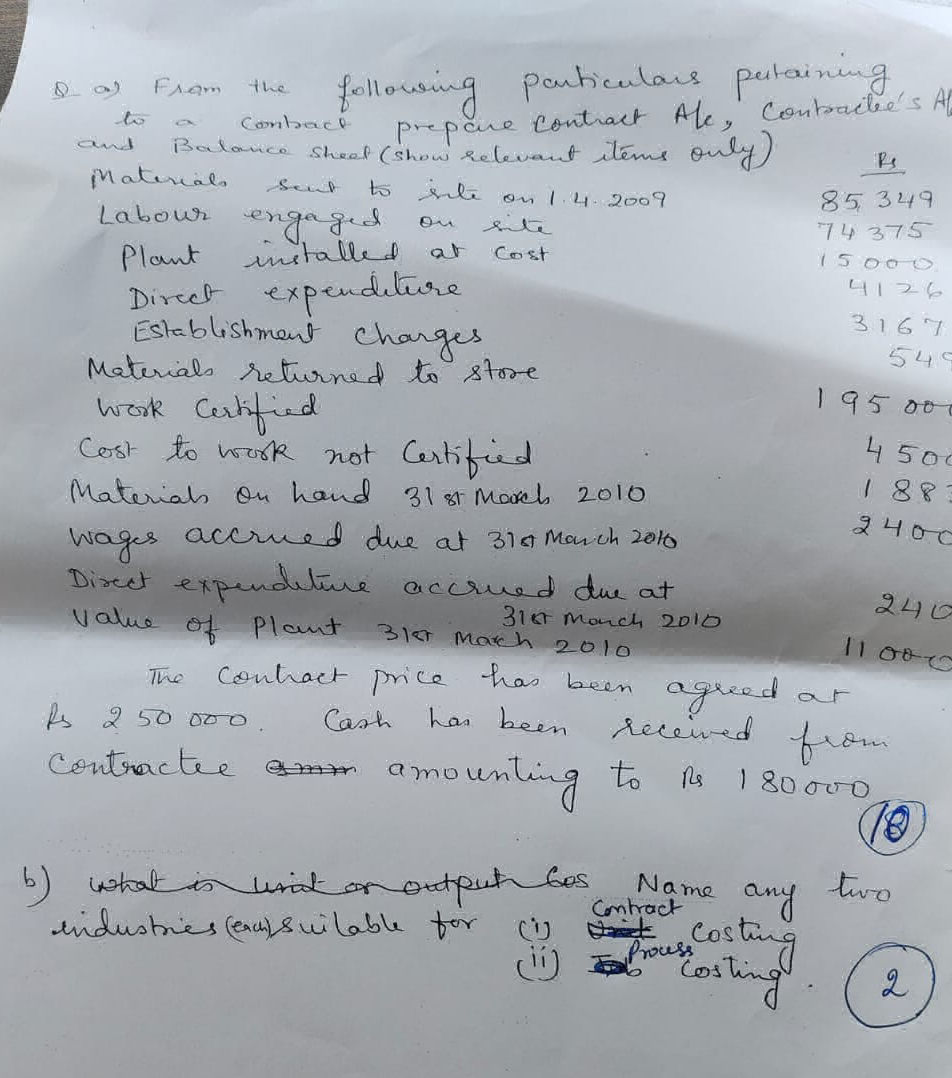 Q a) From the following particulars pertaining
to a contract prepare Contract A/c, Contractee's A/
and Balance Sheet (show relevant items only)
Rs
Materials sent to site on 1.4.2009 85 349
Labour engaged on site 74 375
Plant installed at cost 15000
Direct expenditure 4126
Establishment charges 3167
Materials returned to store 549
Work Certified 195 00
Cost to work not Certified 4 50
Materials on hand 31st March 2010 1 88
Wages accrued due at 31st March 2010 2 40
Direct expenditure accrued due at
31st March 2010 24
Value of Plant 31st March 2010 11 00
The Contract price has been agreed at
Rs 2 50 000. Cash has been received from
Contractee amounting to Rs 1 80 000
10
b) what is unit or output Cos Name any two
industries (each) suitable for (i) Contract Costing
(ii) Process Costing.
2